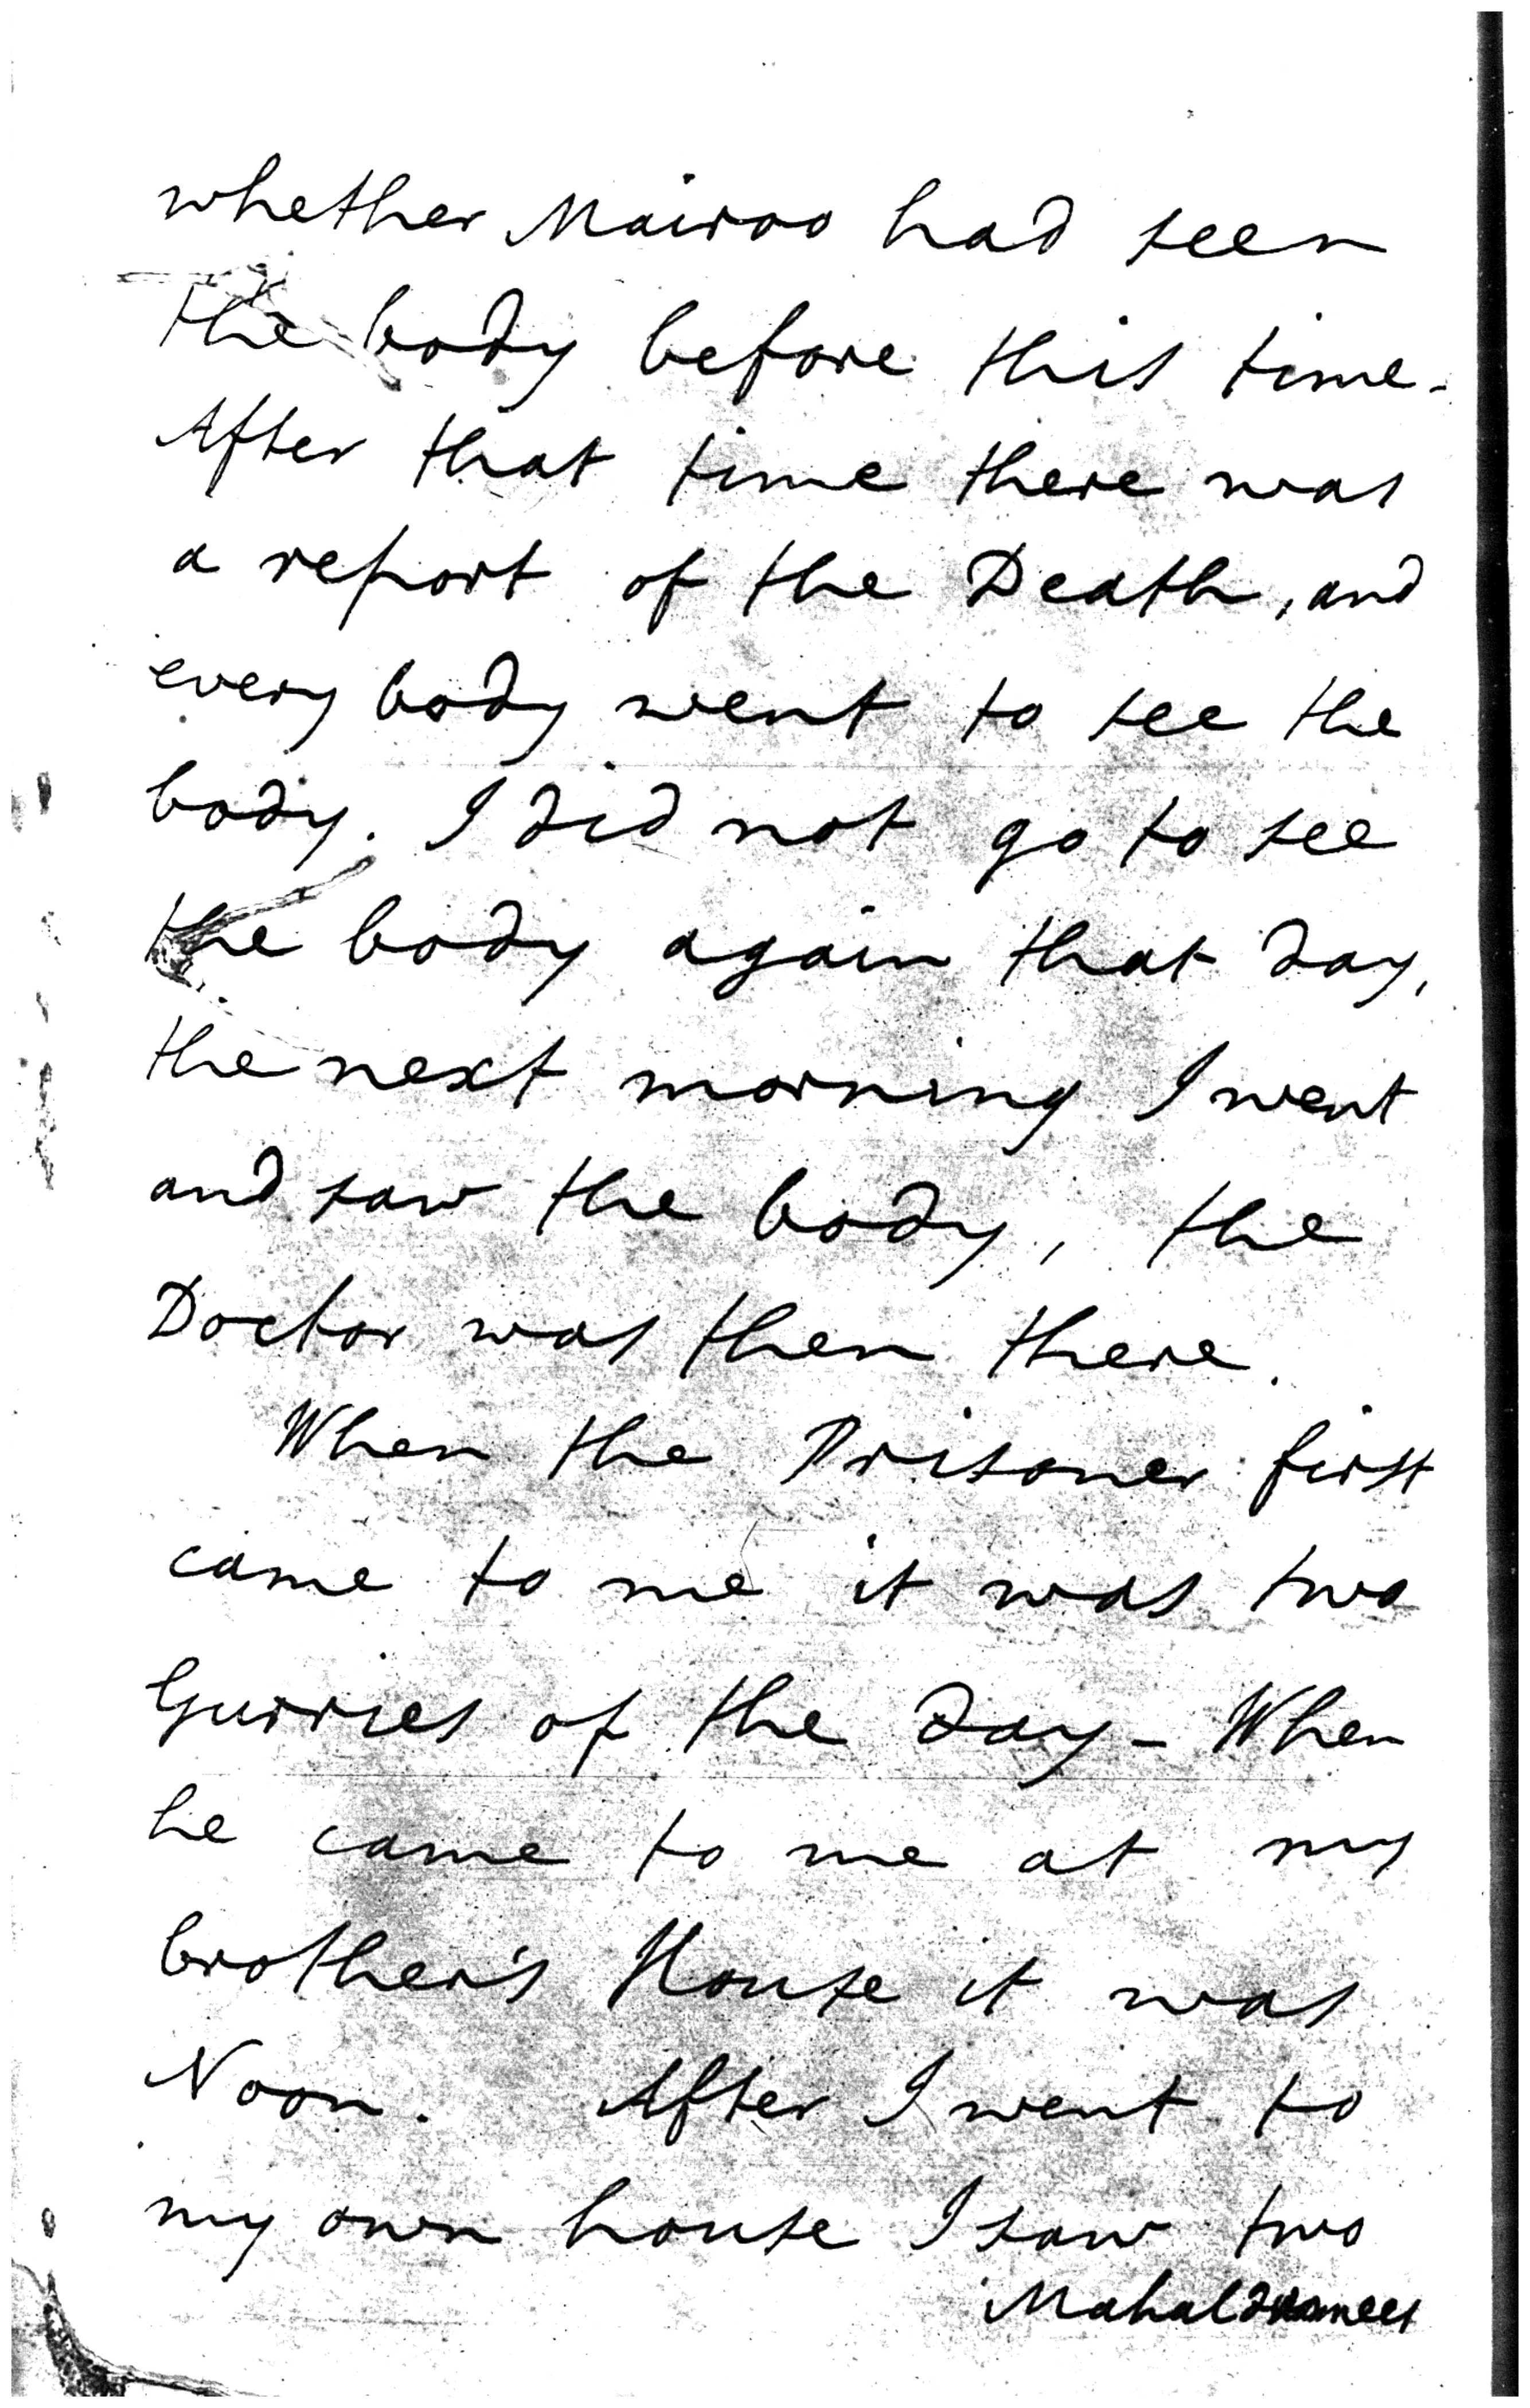 whether Mairoo had seen
the body before this time -
After that time there was
a report of the Death, and
every body went to see the
body. I did not go to see
the body again that day,
the next morning I went
and saw the body, the
Doctor was then there.
When the Prisoner first
came to me it was two
Gurries of the day - When
he came to me at my
brother's House it was
Noon. After I went to
my own house I saw two